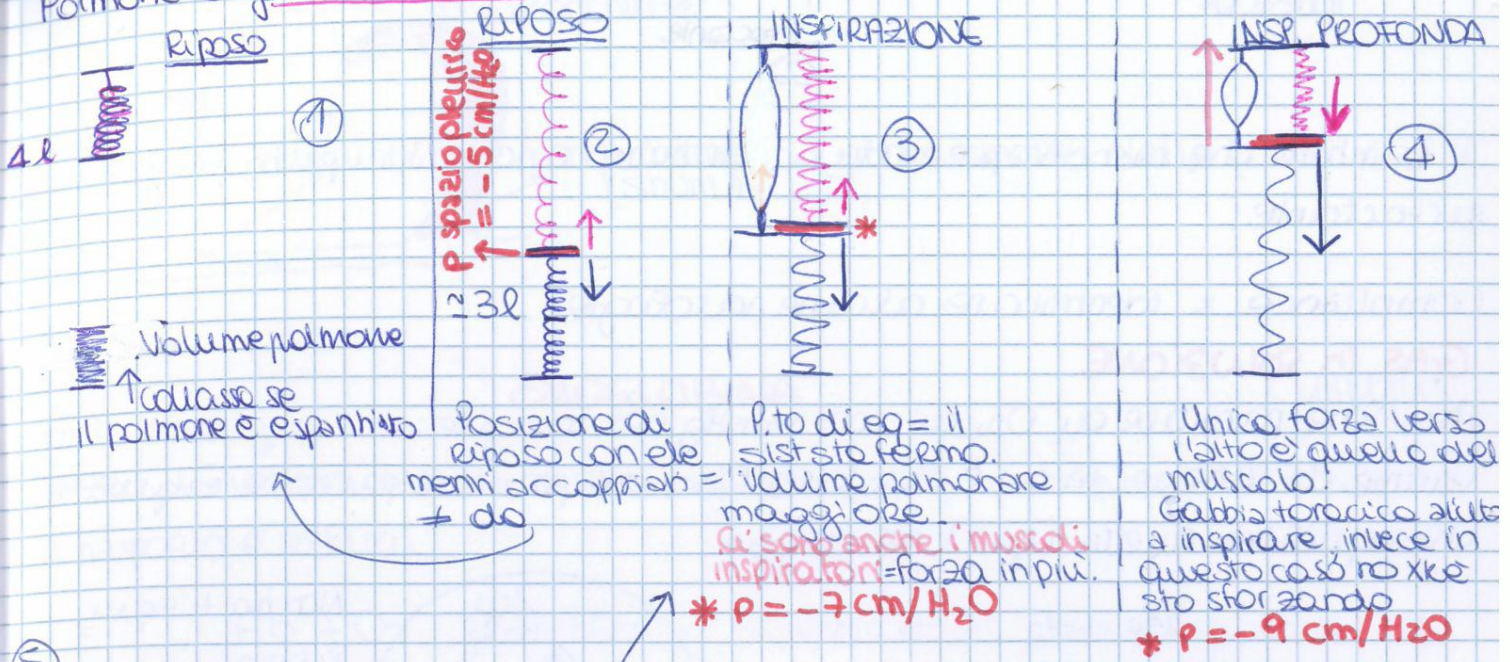 Polmone
Riposo
4l
①
volume polmone
↑ collasso se
il polmone è espantato
RIPOSO
P spazio pleurico
= -5 cm/H2O
②
≃3l
Posizione di
Riposo con ele
menti accoppiati =
≠ da
INSPIRAZIONE
③
*
P.to di eq = il
sist sta fermo.
volume polmonare
maggiore.
Ci sono anche i muscoli
inspiratori = forza in più.
* P = -7 cm/H2O
INSP. PROFONDA
④
Unica forza verso
l'alto è quella del
muscolo.
Gabbia toracica aiuta
a inspirare invece in
questo caso no xkè
sto sforzando
* P = -9 cm/H2O